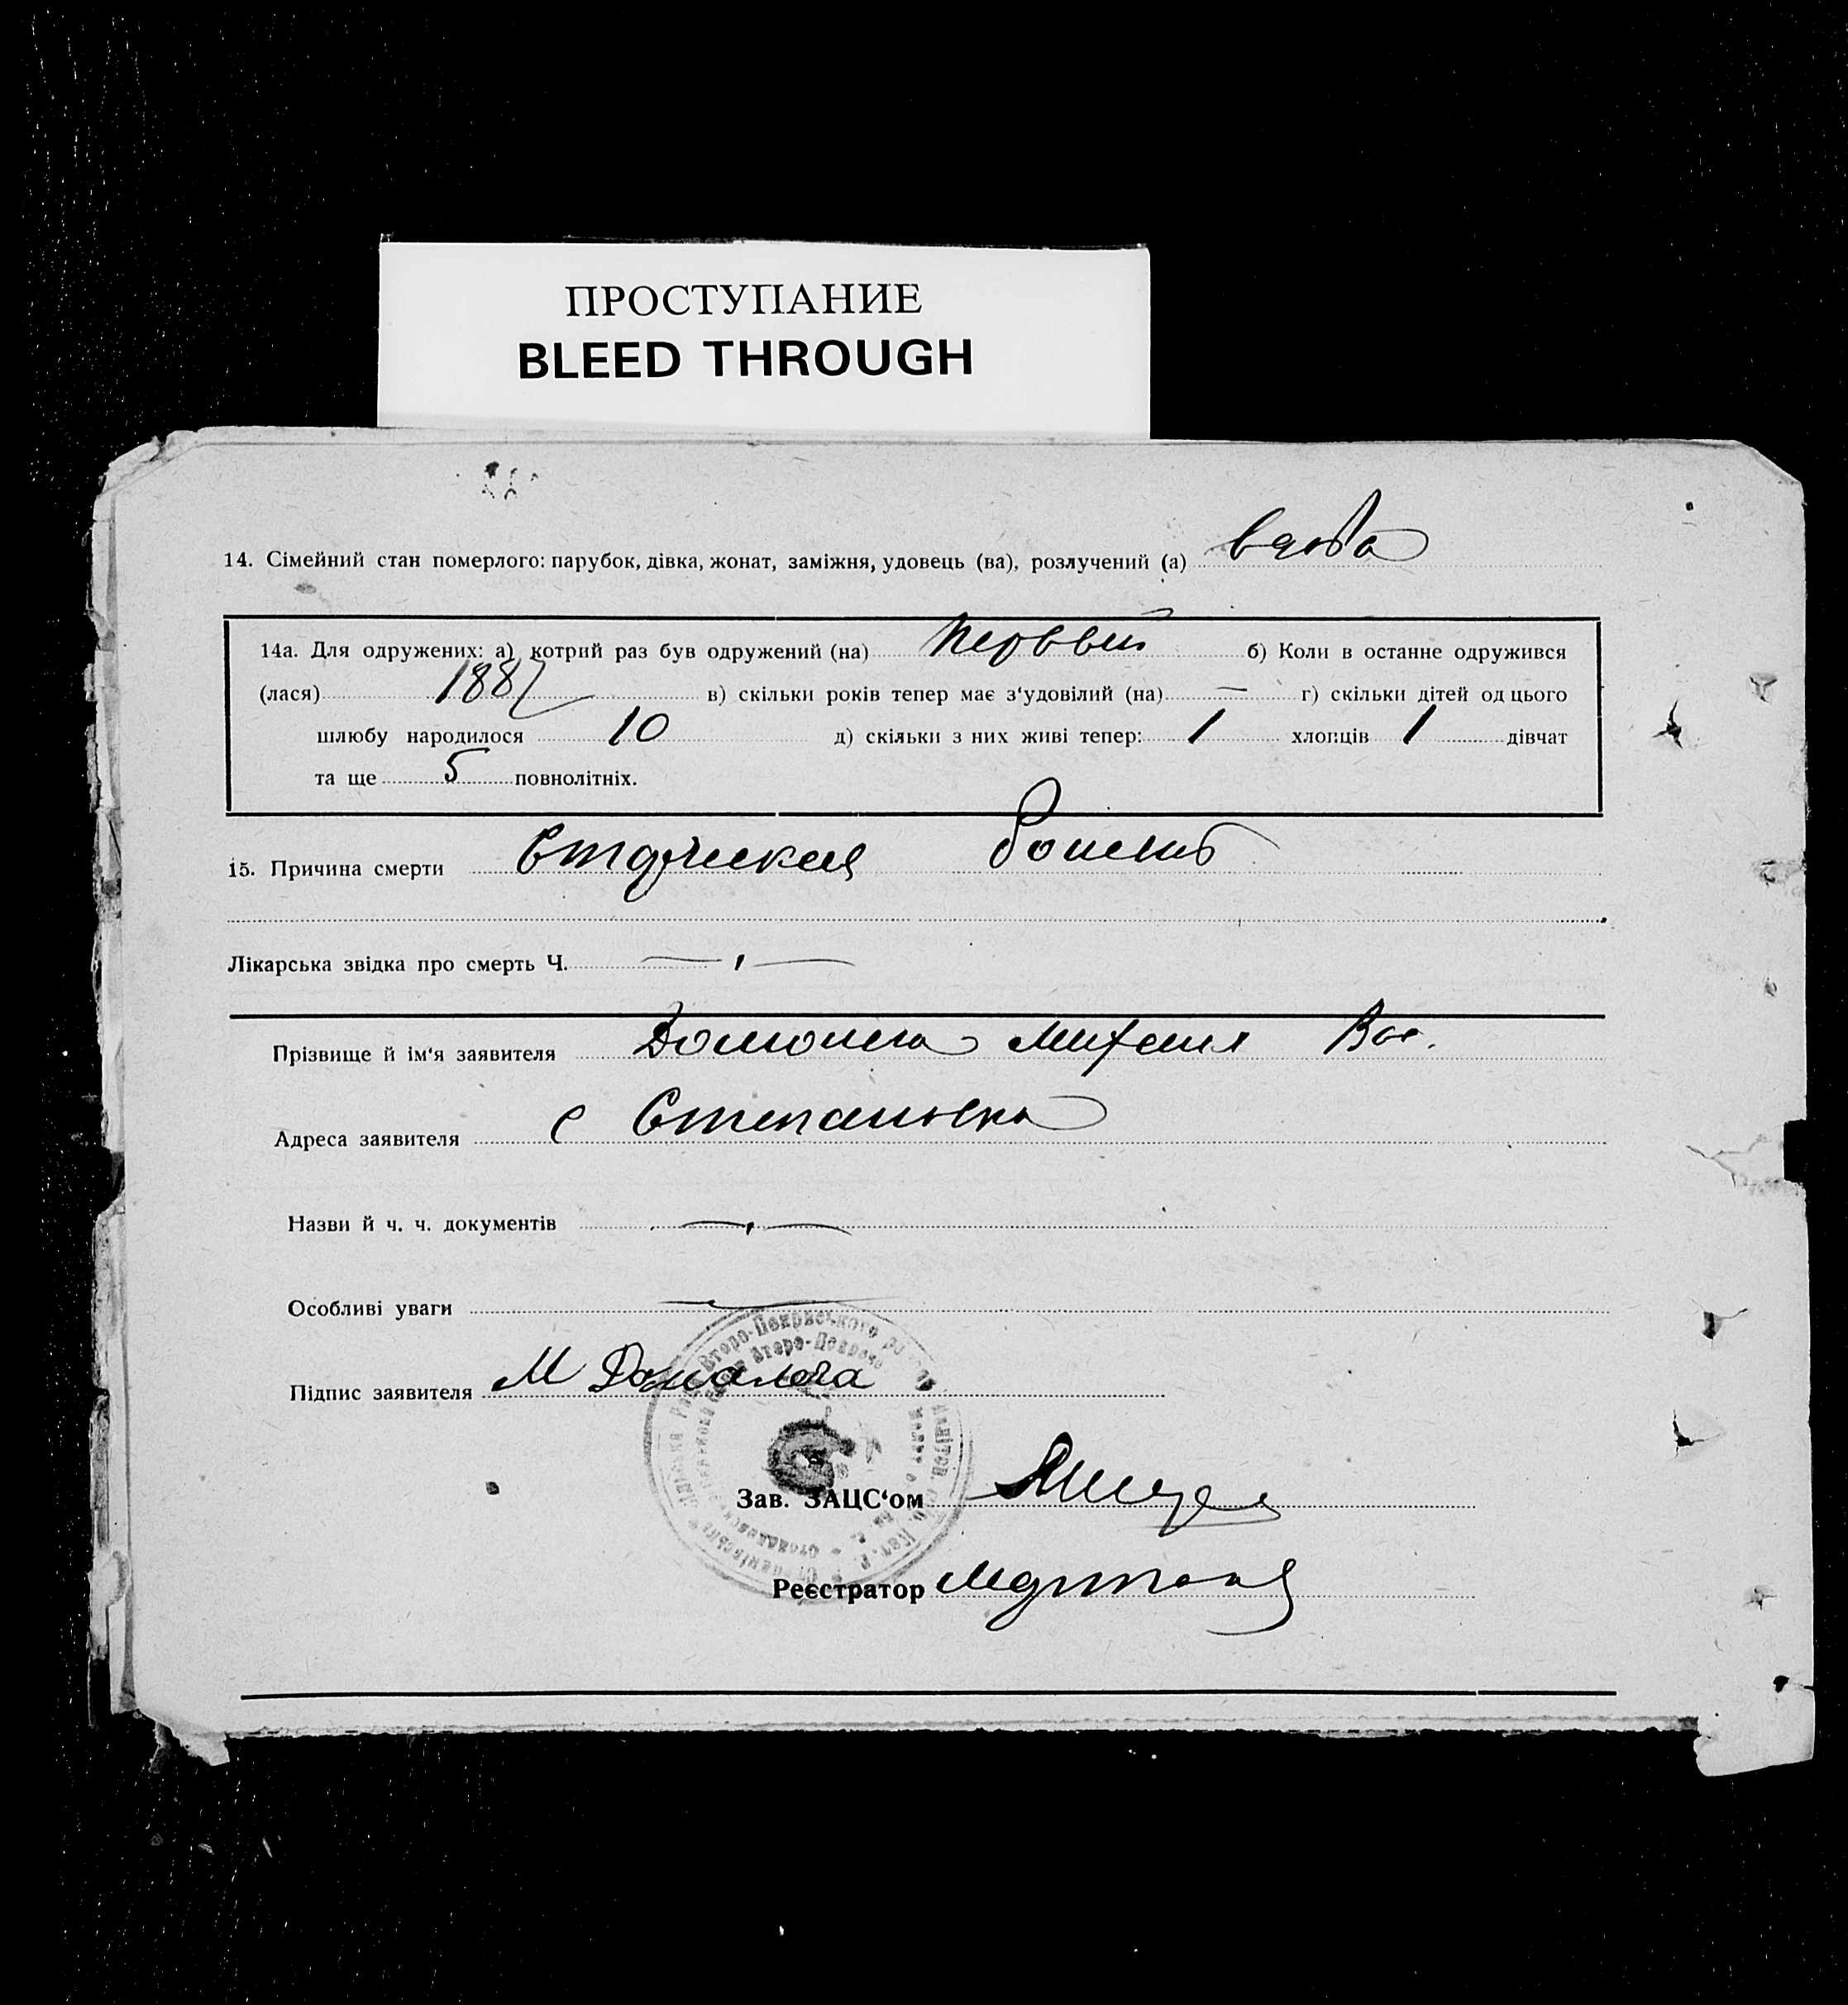 ПРОСТУПАНИЕ
BLEED THROUGH
14. Сімейний стан померлого: парубок, дівка, жонат, заміжня, удовець (ва), розлучений (а) вдова
14а. Для одружених: а) котрий раз був одружений (на) первый б) Коли в останне одружився
(лася) 1887 в) скільки років тепер має з‘удовілий (на) — г) скільки дітей од цього
шлюбу народилося 10 д) скільки з них живі тепер: 1 хлопців 1 дівчат
та ще 5 повнолітніх.
15. Причина смерти
Лікарська звідка про смерть Ч. —„—
Прізвище й ім‘я заявителя Михаил Вас.
Адреса заявителя с Степановка
Назви й ч. ч. документів —„—
Особливі уваги —
Підпис заявителя М
Зав. ЗАЦС‘ом
Реєстратор